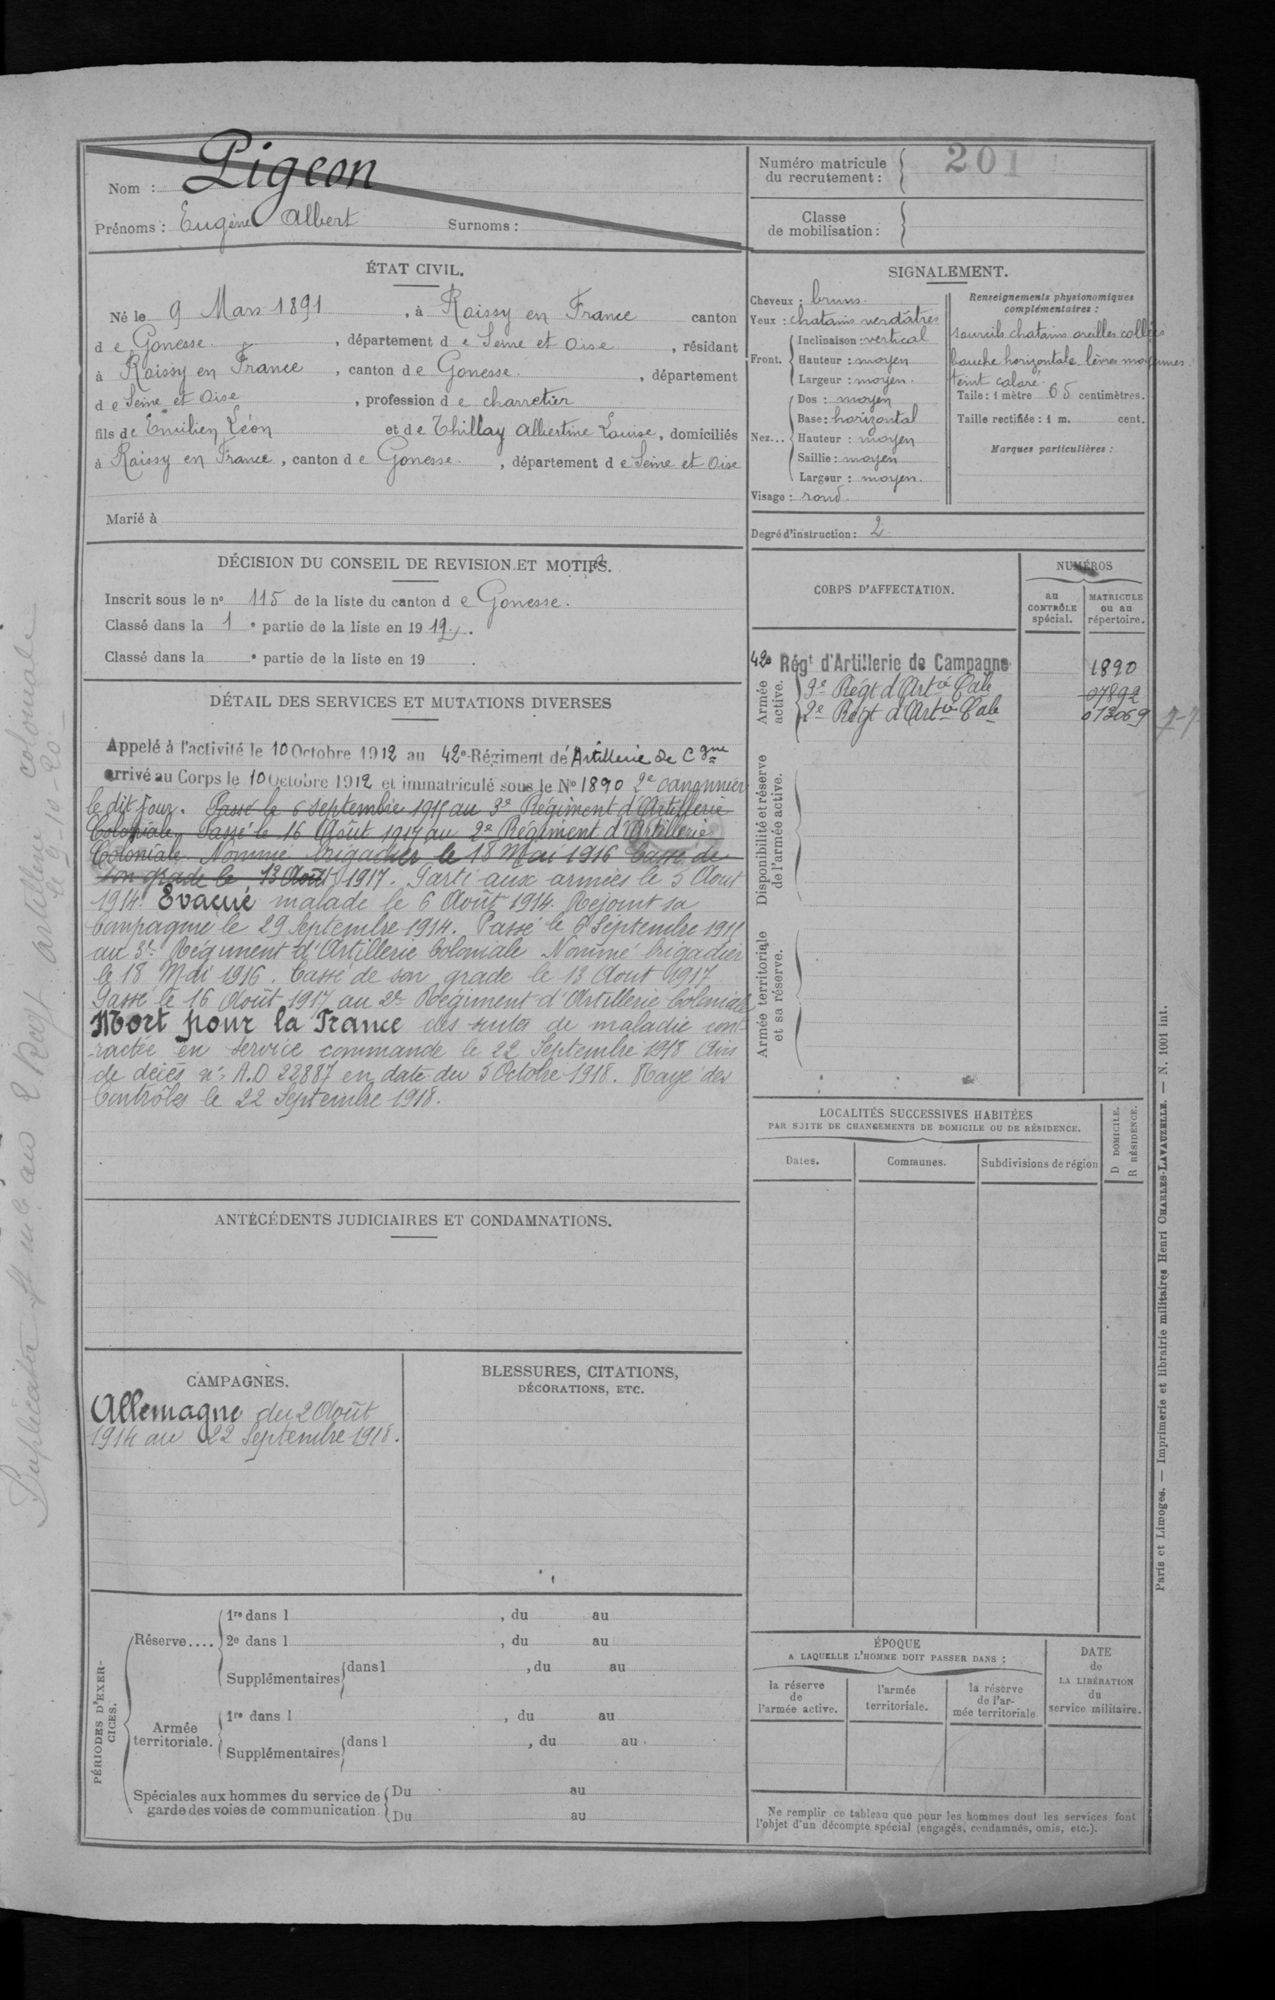 Nom : Pigeon
Prénoms : Eugène Albert Surnoms :
Numéro matricule du recrutement : 201
Classe de mobilisation :
ÉTAT CIVIL.
Né le 9 Mars 1891, à Roissy en France canton
d e Gonesse, département d e Seine et Oise, résidant
à Roissy en France, canton d e Gonesse, département
d e Seine et Oise, profession d e charretier
fils de Emilien Léon et de Thillay Albertine Louise, domiciliés
à Roissy en France, canton d e Gonesse, département d e Seine et Oise
Marié à
SIGNALEMENT.
Cheveux : bruns.
Yeux : chatains verdâtres
Front. Inclinaison : vertical
Hauteur : moyen
Largeur : moyen.
Nez... Dos : moyen
Base : horizontal
Hauteur : moyen
Saillie : moyen
Largeur : moyen.
Visage : rond.
Renseignements physionomiques complémentaires :
sourcils chatains oreilles collées
bouche horizontale lèvres moyennes.
teint coloré.
Taile : 1 mètre 65 centimètres.
Taille rectifiée : 1 m. cent.
Marques particulières :
Degré d'instruction : 2
DÉCISION DU CONSEIL DE REVISION ET MOTIFS.
Inscrit sous le nº 115 de la liste du canton d e Gonesse.
Classé dans la 1 e partie de la liste en 1912.
Classé dans la e partie de la liste en 19 .
CORPS D'AFFECTATION.
NUMÉROS
au CONTRÔLE spécial.
MATRICULE ou au répertoire.
Armée active.
42e Régt d'Artillerie de Campagne 1890
3e Régt d'Artie Cale 07892
2e Régt d'Artie Cale 013069
Disponibilité et réserve de l'armée active.
Armée territoriale et sa réserve.
DÉTAIL DES SERVICES ET MUTATIONS DIVERSES
Appelé à l'activité le 10 Octobre 1912 au 42e Régiment d'Artillerie de Cgne
arrivé au Corps le 10 Octobre 1912 et immatriculé sous le Nº 1890 2e canonnier
le dit jour. Passé le 6 septembre 1915 au 3e Régiment d'Artillerie
Coloniale. Passé le 16 Août 1917 au 2e Régiment d'Artillerie
Coloniale. Nommé brigadier le 18 Mai 1916 Cassé de
son grade le 13 Août 1917. Parti aux armées le 5 Aout
1914. Evacué malade le 6 Août 1914. Rejoint sa
Compagnie le 29 Septembre 1914. Passé le 6 Septembre 1915
au 3e Régiment d'Artillerie Coloniale Nommé brigadier
le 18 Mai 1916. Cassé de son grade le 13 Aout 1917
Passé le 16 Août 1917 au 2e Régiment d'Artillerie Coloniale
Mort pour la France des suites de maladie con-
tractée en service commandé le 22 Septembre 1918 Avis
de décès nº A.D 22887 en date du 5 Octobre 1918. Rayé des
Contrôles le 22 Septembre 1918.
LOCALITÉS SUCCESSIVES HABITÉES
PAR SUITE DE CHANGEMENTS DE DOMICILE OU DE RÉSIDENCE.
Dates. Communes. Subdivisions de région D DOMICILE. R RÉSIDENCE.
ANTÉCÉDENTS JUDICIAIRES ET CONDAMNATIONS.
CAMPAGNES.
Allemagne du 2 Août
1914 au 22 Septembre 1918.
BLESSURES, CITATIONS,
DÉCORATIONS, ETC.
PÉRIODES D'EXERCICES.
Réserve.... 1re dans l , du au
2e dans l , du au
Supplémentaires dans l , du au
Armée territoriale. 1re dans l , du au
Supplémentaires dans l , du au
Spéciales aux hommes du service de garde des voies de communication. Du au
Du au
ÉPOQUE
A LAQUELLE L'HOMME DOIT PASSER DANS :
la réserve de l'armée active.
l'armée territoriale.
la réserve de l'armée territoriale
DATE de LA LIBÉRATION du service militaire.
Ne remplir ce tableau que pour les hommes dont les services font
l'objet d'un décompte spécial (engagés, condamnés, omis, etc.).
Paris et Limoges. — Imprimerie et librairie militaires Henri CHARLES-LAVAUZELLE. — N. 1001 int.
au 2 Regt Artillerie coloniale
le 9-10-20